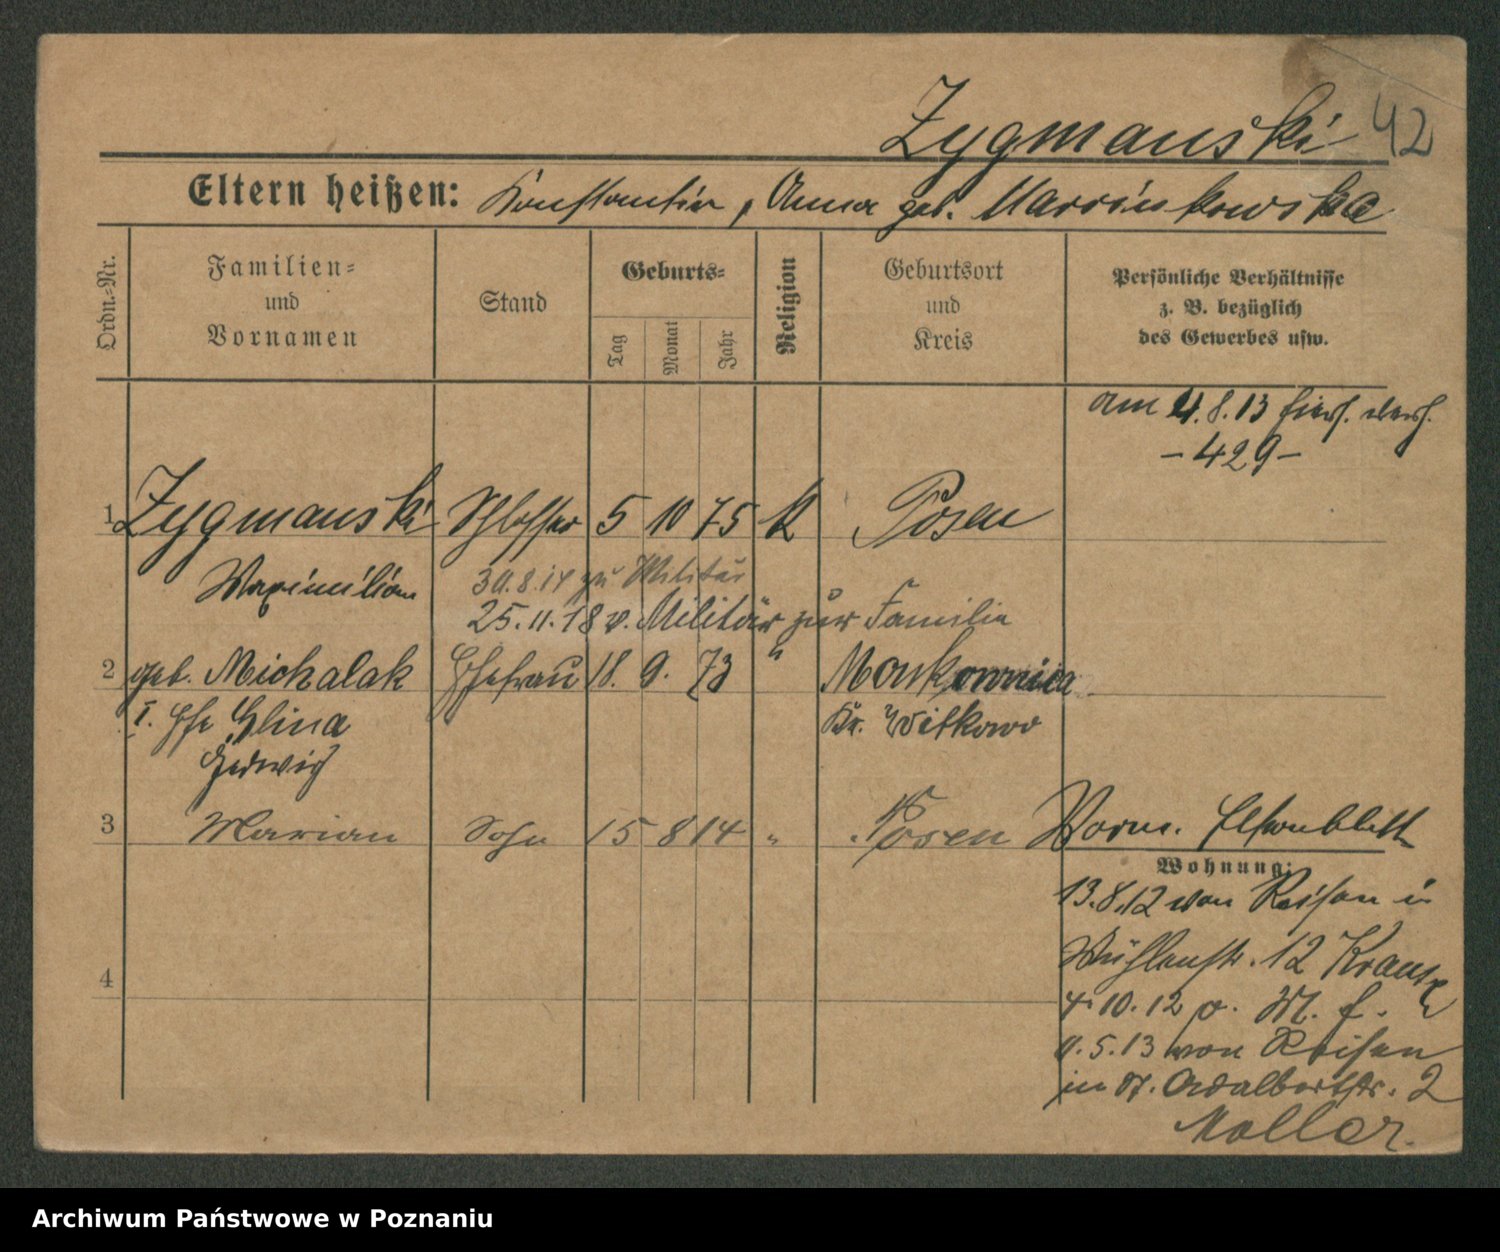 Zygmanski 42
Eltern heißen: Konstantin, Anna geb. Marcinkowska
Ordn.-Nr.
Familien-
und
Vornamen
Stand
Geburts-
Tag
Monat
Jahr
Religion
Geburtsort
und
Kreis
Persönliche Verhältnisse
z. B. bezüglich
des Gewerbes usw.
am 4.8.13 hier
- 429 -
1 Zygmanski Schlosser 5 10 75 K Posen
Maximilian 30.8.14 zu Militär
25.11.18 v. Militär zur Familie
2 geb. Michalak Ehefrau 18. 9. 73 "
I. Ehe Glina Kr. Witkowo
Hedwig
3 Marian Sohn 15 8 14 " Posen Vorm.
Wohnung:
13.8.12 von Reisen in
Mühlenstr. 12 Krause
4.10.12
11.5.13 von Reisen
in St. Adalbertstr. 2
Moller.
4
Archiwum Państwowe w Poznaniu